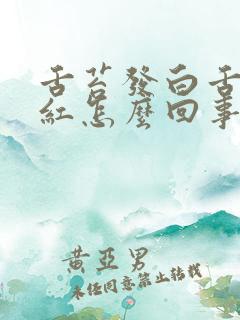 舌苔發白舌
紅怎麼回事
黃亞男
未經同意禁止轉載